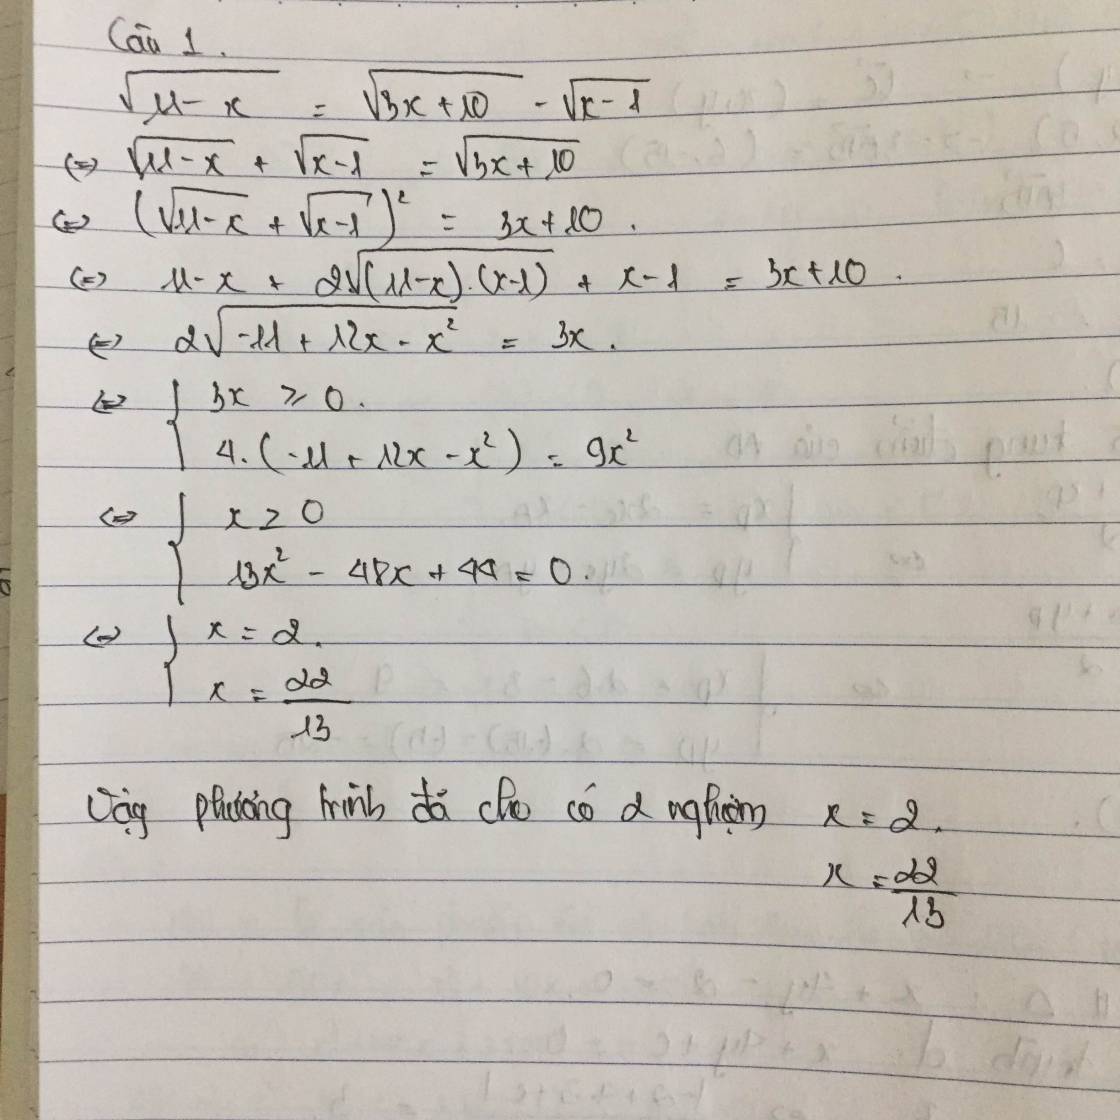 Câu 1.
√(11-x) = √(3x+10) - √(x-1)
(=) √(11-x) + √(x-1) = √(3x+10)
(=) (√(11-x) + √(x-1))² = 3x+10.
(=) 11-x + 2√((11-x).(x-1)) + x-1 = 3x+10.
(=) 2√(-11+12x-x²) = 3x.
(=) { 3x ≥ 0.
4.(-11+12x-x²) = 9x²
(=) { x ≥ 0
13x² - 48x + 44 = 0.
(=) { x = 2.
x = 22/13
Vậy phương trình đã cho có 2 nghiệm x = 2.
x = 22/13